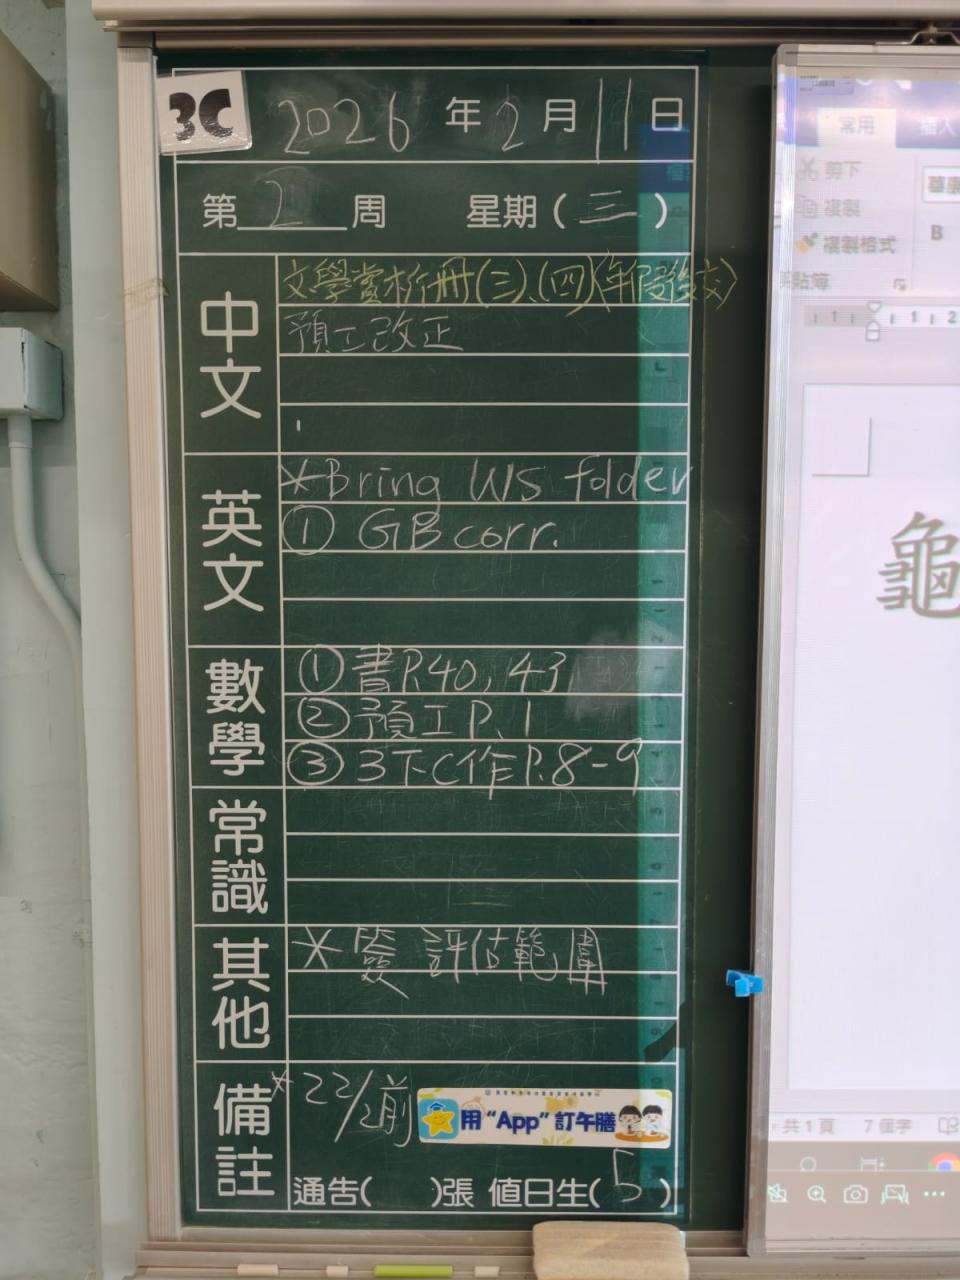 3C
2026年2月11日
第2周 星期(三)
中文
文學賞析冊(三)、(四)(年假後交)
預工改正
英文
*Bring WS folder
① GB corr.
數學
① 書P.40, 43
② 預工P.1
③ 3下C作P.8-9
常識
其他
* 簽 評估範圍
備註
* 22/2前
用“App”訂午膳
通告( )張 值日生(5)
常用 插入
剪下
複製
複製格式
B
龜
共1頁 7個字